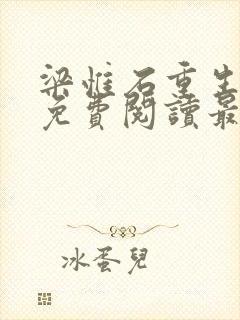 梁惟石重生
免費閱讀最
冰蛋兒